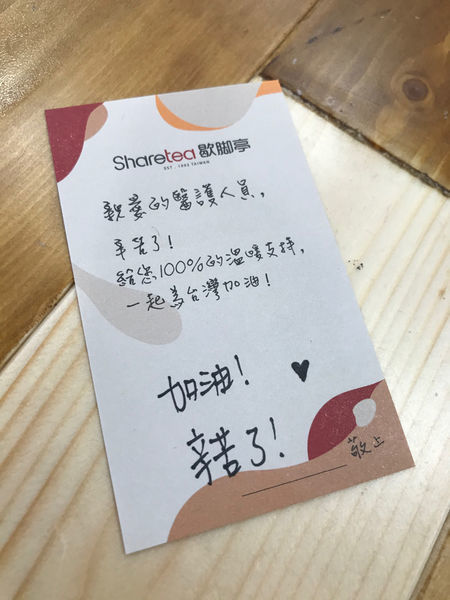 Sharetea 歇腳亭
EST · 1992 TAIWAN
親愛的醫護人員,
辛苦了!
給您100%的溫暖支持,
一起為台灣加油!
加油!
辛苦了!
敬上